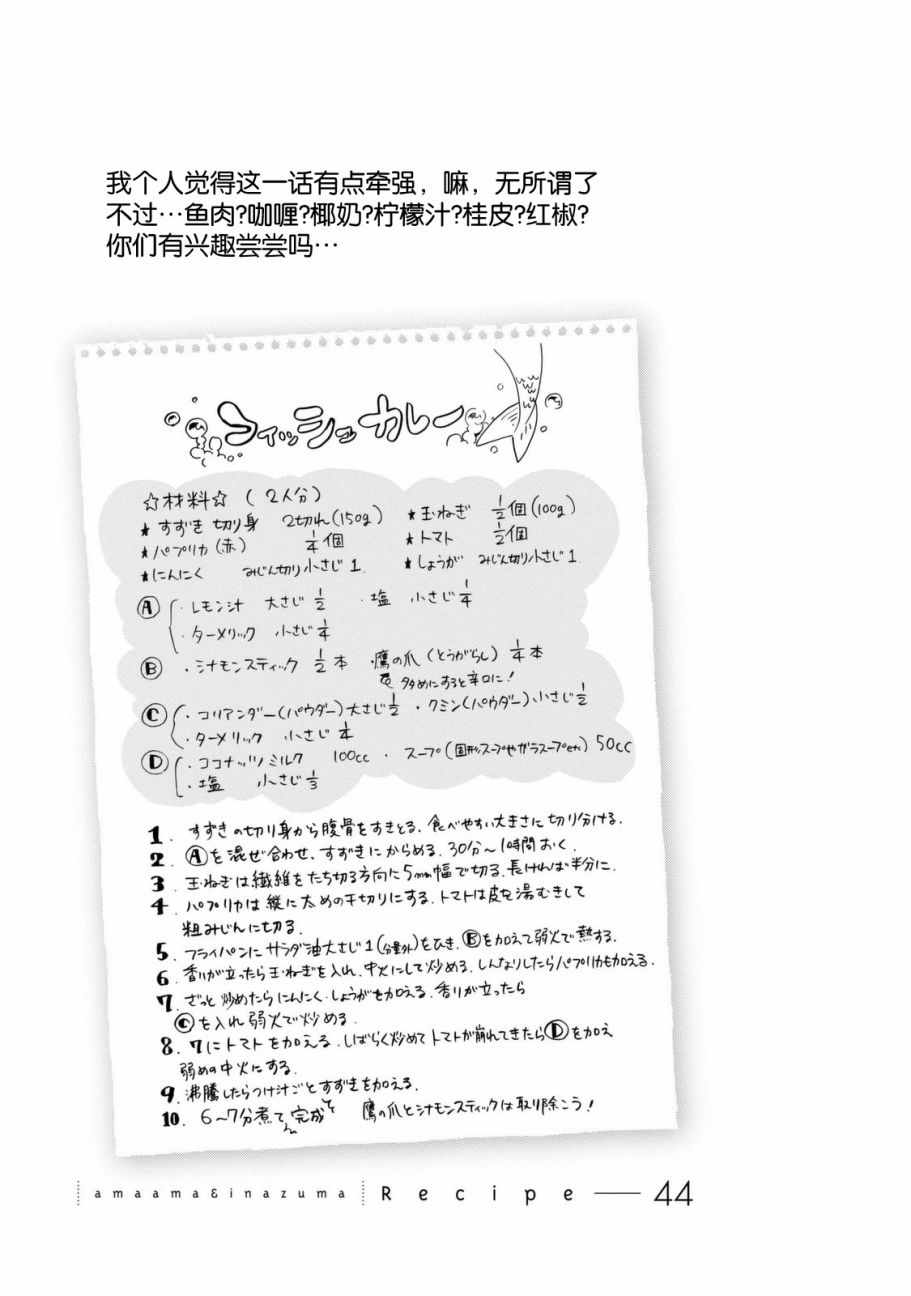 我个人觉得这一话有点牵强，嘛，无所谓了
不过…鱼肉?咖喱?椰奶?柠檬汁?桂皮?红椒?
你们有兴趣尝尝吗…
フィッシュカレー
☆材料☆ (2人分)
★すずき 切り身 2切れ(150g) ★玉ねぎ 1/2個(100g)
★パプリカ(赤) 1/4個 ★トマト 1/2個
★にんにく みじん切り小さじ1. ★しょうが みじん切り小さじ1.
Ⓐ ・レモン汁 大さじ1/2 ・塩 小さじ1/4
・ターメリック 小さじ1/4
Ⓑ ・シナモンスティック 1/2本 ・鷹の爪(とうがらし) 1/4本
多めにすると辛口に!
Ⓒ ・コリアンダー(パウダー)大さじ1/2 ・クミン(パウダー)小さじ1/2
・ターメリック 小さじ1/4
Ⓓ ・ココナッツミルク 100cc ・スープ(固形スープやガラスープetc) 50cc
・塩 小さじ1/3
1. すずきの切り身から腹骨をすきとる．食べやすい大きさに切り分ける．
2. Ⓐを混ぜ合わせ、すずきにからめる．30分〜1時間おく．
3. 玉ねぎは繊維をたち切る方向に5mm幅で切る．長ければ半分に．
4. パプリカは縦に太めの千切りにする．トマトは皮を湯むきして
粗みじんに切る．
5. フライパンにサラダ油大さじ1(分量外)をひき、Ⓑを加えて弱火で熱する．
6. 香りが立ったら玉ねぎを入れ、中火にして炒める．しんなりしたらパプリカも加える．
7. ざっと炒めたらにんにく・しょうがを加える．香りが立ったら
Ⓒを入れ弱火で炒める．
8. 7にトマトを加える．しばらく炒めてトマトが崩れてきたらⒹを加え
弱めの中火にする．
9. 沸騰したらつけ汁ごとすずきを加える．
10. 6〜7分煮て、完成 鷹の爪とシナモンスティックは取り除こう!
amaama&inazuma Recipe — 44